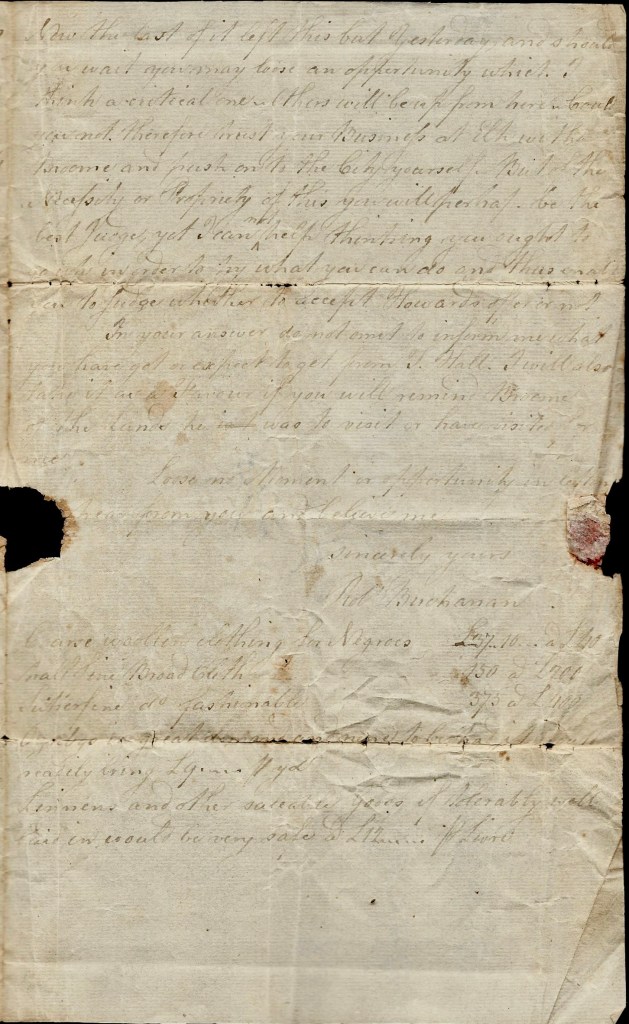 Now the last of it left this but Yesterday, and should
you wait you may loose an opportunity which I
think a critical one. Others will be up from here. Could
you not therefore trust your Business at Elk with
Broome and push on to the City yourself. But of the
Necessity or Propriety of this you will perhaps be the
best Judge, yet I can not help thinking you ought to
in order to try what you can do and thus enable
to Judge whether to accept Howards offer or not
In your answer do not omit to inform me what
you have got or expect to get from J. Hall. I will also
take it as a favour if you will remind Broome
of the Lands he is was to visit or have visited for
me
Loose no Moment or opportunity in letting
hear from you and believe me
sincerely yours
Robt Buchanan
Coarse woolen clothing for Negroes £37.10 a £40
half fine Broad Cloths 150 a £200
Superfine do fashionable 375 a £400
great demand
readily bring £9 yd
Linnens and other saleable goods if tolerably well
laid in would be very sale a £12